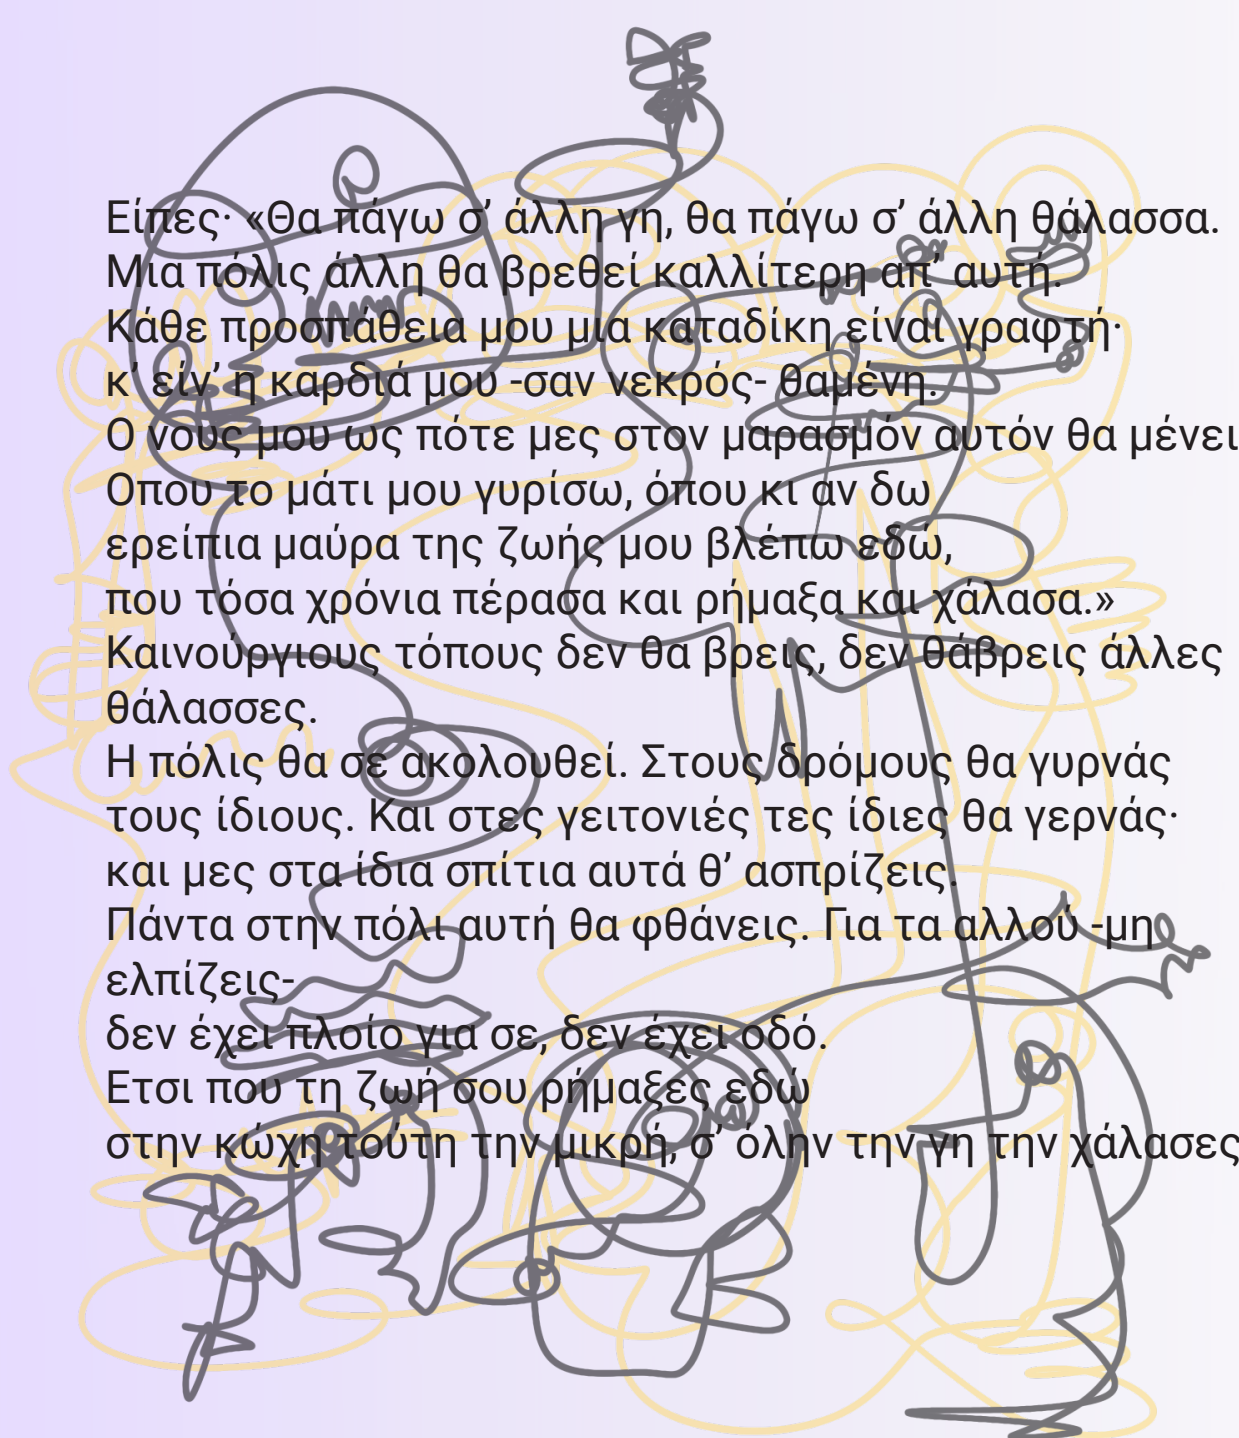 Είπες· «Θα πάγω σ’ άλλη γη, θα πάγω σ’ άλλη θάλασσα.
Μια πόλις άλλη θα βρεθεί καλλίτερη απ’ αυτή.
Κάθε προσπάθεια μου μια καταδίκη είναι γραφτή·
κ’ είν’ η καρδιά μου -σαν νεκρός- θαμένη.
Ο νους μου ως πότε μες στον μαρασμόν αυτόν θα μένει
Οπου το μάτι μου γυρίσω, όπου κι αν δω
ερείπια μαύρα της ζωής μου βλέπω εδώ,
που τόσα χρόνια πέρασα και ρήμαξα και χάλασα.»
Καινούργιους τόπους δεν θα βρεις, δεν θάβρεις άλλες
θάλασσες.
Η πόλις θα σε ακολουθεί. Στους δρόμους θα γυρνάς
τους ίδιους. Και στες γειτονιές τες ίδιες θα γερνάς·
και μες στα ίδια σπίτια αυτά θ’ ασπρίζεις.
Πάντα στην πόλι αυτή θα φθάνεις. Για τα αλλού -μη
ελπίζεις-
δεν έχει πλοίο για σε, δεν έχει οδό.
Ετσι που τη ζωή σου ρήμαξες εδώ
στην κώχη τούτη την μικρή, σ’ όλην την γη την χάλασες